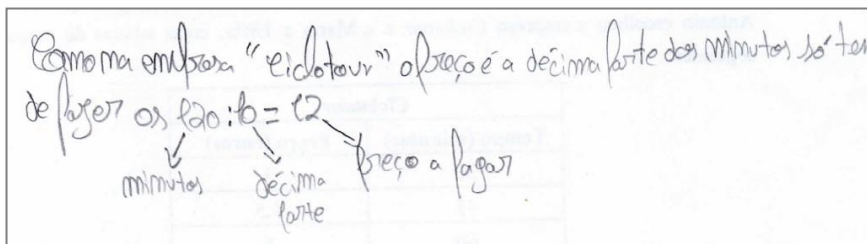 Como na empresa "Ciclotour" o preço é a décima parte dos minutos só tem
de fazer os 120:10=12
minutos
décima
parte
preço a pagar